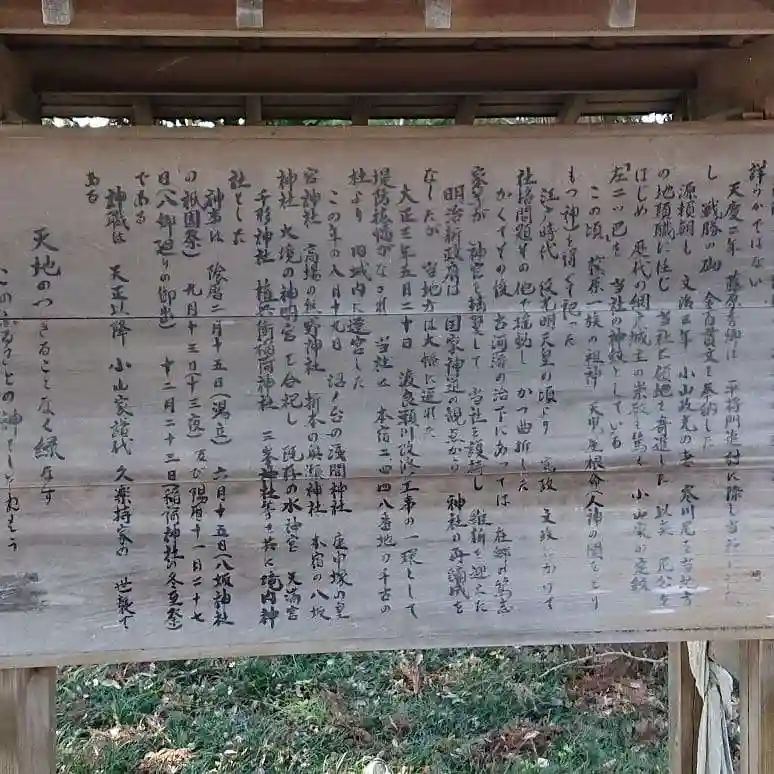 詳らかではない
天慶二年 藤原秀郷は 平将門追討に際し当社に
し 戦勝の砌 金百貫文を奉納した
源頼朝し 文治三年 小山政光の妻 寒川尼を当地方
の地頭職に任じ 当社に領地を寄進した 以来 尼公を
はじめ 歴代の網戸城主の崇敬を篤く 小山家の定紋
「左二ツ巴」を 当社の神紋としている
この頃 藤原一族の祖神 天児屋根命(人神の間をとり
もつ神)を請じて祀った
江戸時代 後光明天皇の頃より 寛政 文政にかけて
社格問題その他で揺動し かつ曲折した
かくてその後 古河藩の治下にあっては 在郷の篤志
家等が 神官を援翼して 当社を護持し 維新を迎えた
明治新政府は 国家神道の観点から 神社の再編成を
なしたが 当地方は大幅に遅れた
大正三年五月二十日 渡良瀬川改修工事の一環として
堤防拡幅がなされ 当社は 本宿二四四八番地の千古の
社より 旧城内に遷宮した
この年の八月十九日 沼ノ台の浅間神社 庚申塚の皇
宮神社 高場の熊野神社 新本の厳島神社 本宿の八坂
神社 大境の神明宮 を合祀し 既存の水神宮 天満宮
千形神社 植兵衛稲荷神社 三峯神社等を共に境内神
社とした
神事は 陰暦二月十五日(鴻立) 六月十五日(八坂神社
の祇園祭) 九月十三日(十三夜)及び陽暦十一月二十七
日(八郷廻りの御出) 十二月二十三日(稲荷神社の冬至祭)
である
神職は 天正以降 小山家譜代 久楽持家の 世襲で
ある
天地のつきることなく緑なす